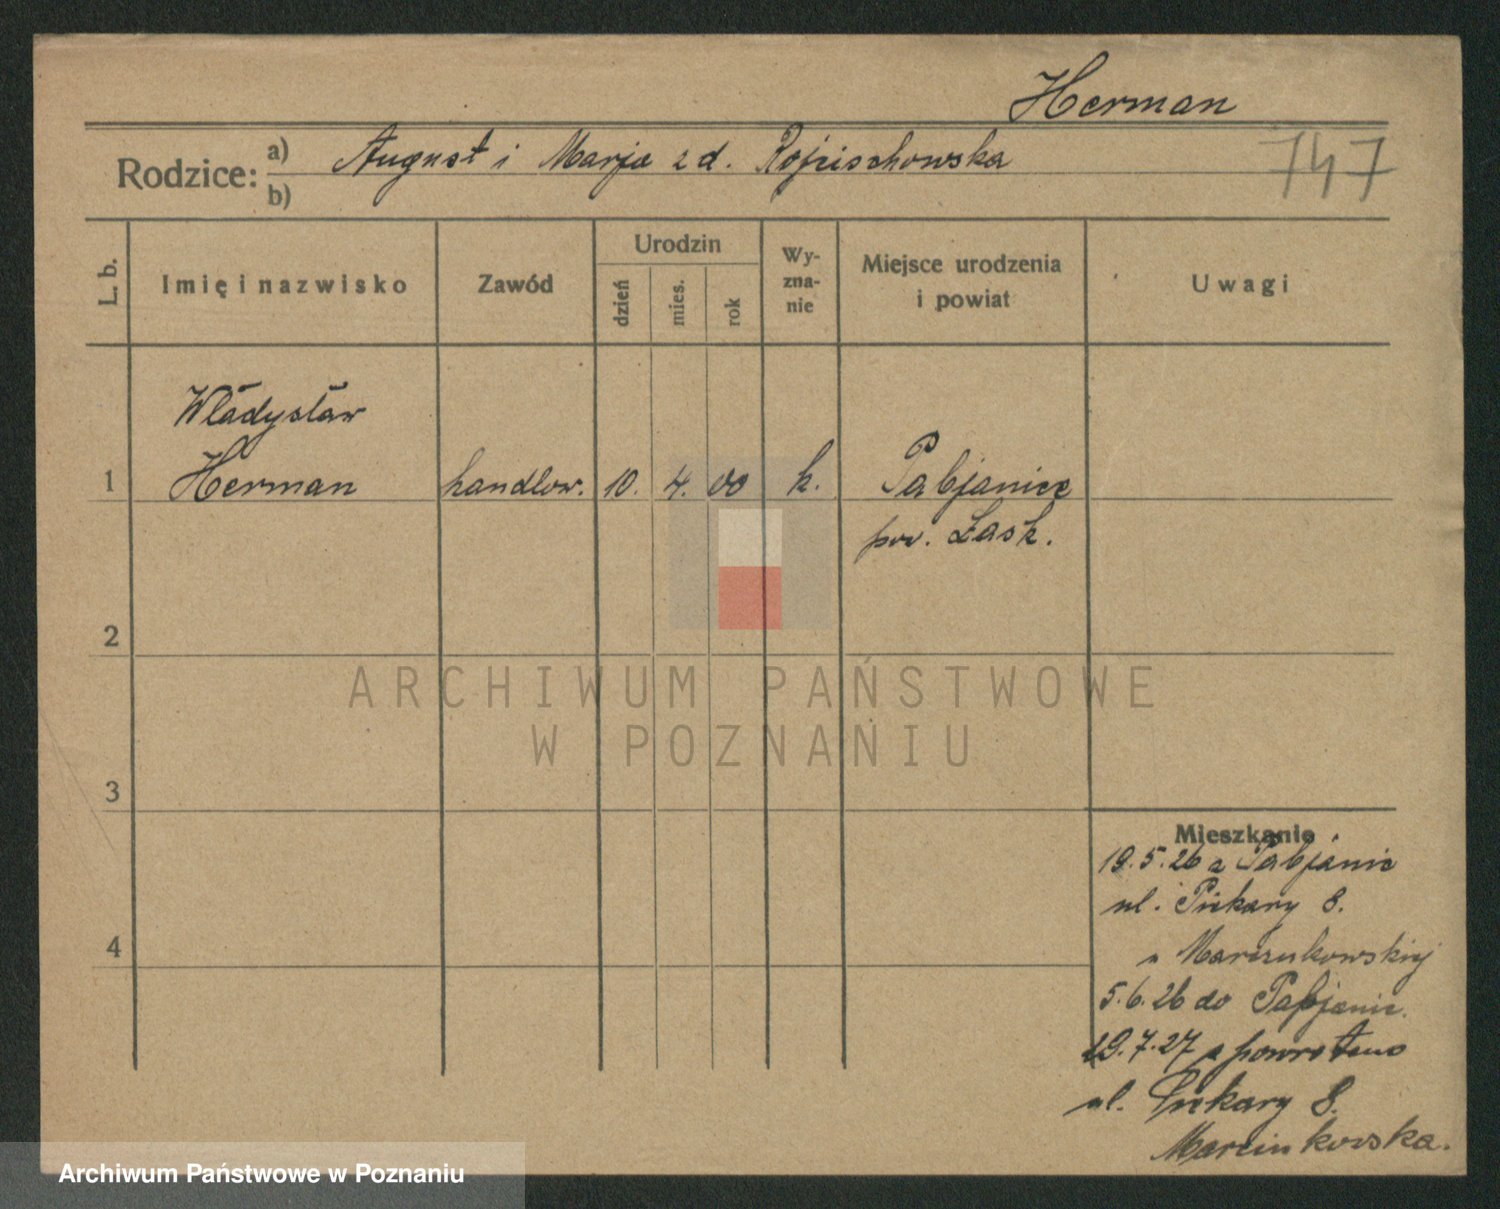 Herman
Rodzice: a) August i Marja z d. Rojcischowska
b)
747
L. b.
Imię i nazwisko
Zawód
Urodzin
dzień
mies.
rok
Wy-
zna-
nie
Miejsce urodzenia
i powiat
Uwagi
Władysław
1 Herman handlow. 10. 4. 00 k. Pabjanice
pow. Łask.
2
ARCHIWUM PAŃSTWOWE
W POZNANIU
3
Mieszkanie
19.5.26 z Pabjanic
ul. Piekary 8.
u Marcinkowskiej
4
5.6.26 do Pabjanic.
29.7.27 z powrotem
ul. Piekary 8.
Marcinkowska.
Archiwum Państwowe w Poznaniu